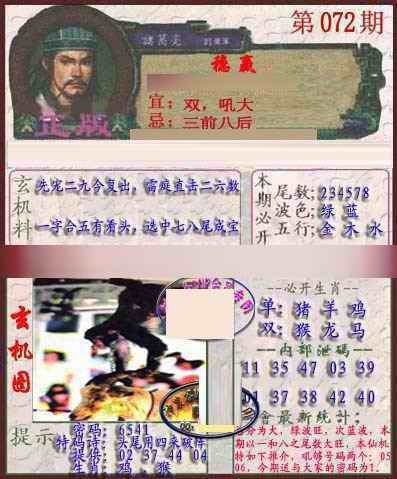 第072期
稳赢
宜：双，吼大
忌：三前八后
正版
玄机料
先定二九今复出，需观直击二六数
一字合五有看头，选中七八尾成宝
本期必开
尾数:234578
波色:绿 蓝
五行:金 木 水
玄机图
必开生肖
单:猪羊鸡
双:猴龙马
内部泄码
11 35 47 03 39
37 38 42 40
最新统计:
分为大，绿波旺，次蓝波，本
期以一和八之尾数大旺，本仙机
特如下推介，吼够号码两个：05
06，今期送与大家的密码为1.
提示
密码: 6541
特码诗: 头尾用四来破件
提倍: 02 37 44 04
生肖: 鸡，猴